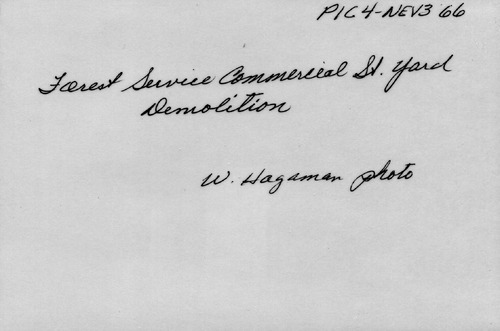 PIC4-NEV3 66
Forest Service Commercial St. Yard
Demolition
W. Hagaman photo